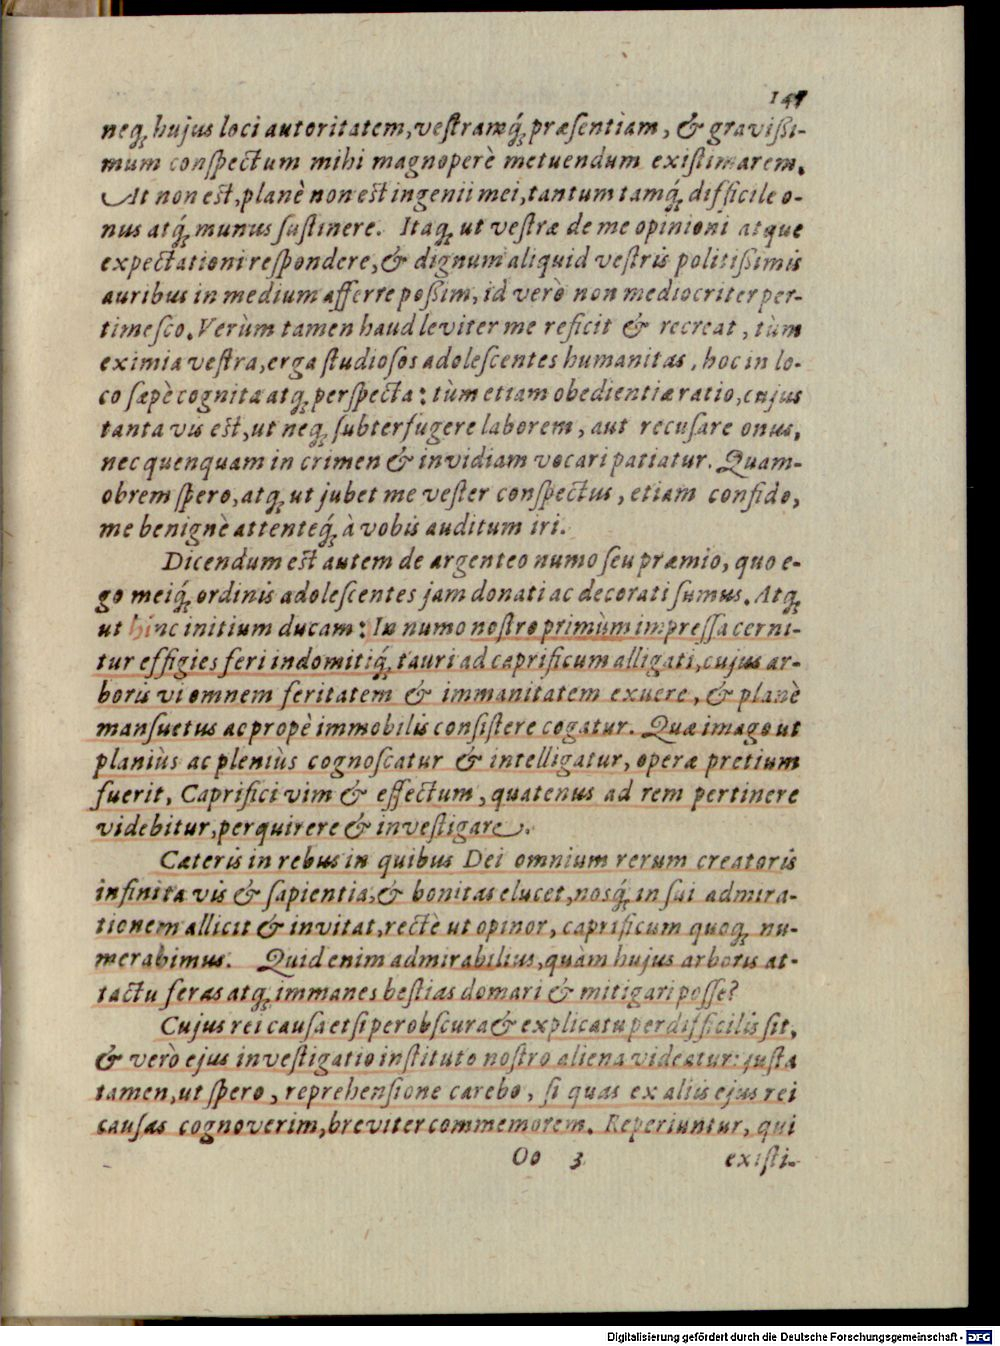 147
neq; hujus loci autoritatem, veſtramq́; præſentiam, & graviſſi-
mum conſpectum mihi magnoperè metuendum exiſtimarem.
At non eſt, planè non eſt ingenii mei, tantum tamq́; difficile o-
nus atq́; munus ſuſtinere. Itaq; ut veſtræ de me opinioni atque
expectationi reſpondere, & dignum aliquid veſtris politiſſimis
auribus in medium afferre poſſim, id verò non mediocriter per-
timeſco. Verùm tamen haud leviter me reficit & recreat, tùm
eximia veſtra, erga ſtudioſos adoleſcentes humanitas, hoc in lo-
co ſæpè cognita atq; perſpecta: tùm etiam obedientiæ ratio, cujus
tanta vis eſt, ut neq; ſubterfugere laborem, aut recuſare onus,
nec quenquam in crimen & invidiam vocari patiatur. Quam-
obrem ſpero, atq; ut jubet me veſter conſpectus, etiam confido,
me benignè attenteq́; à vobis auditum iri.
Dicendum eſt autem de argenteo numo ſeu præmio, quo e-
go meiq́; ordinis adoleſcentes jam donati ac decorati ſumus. Atq;
ut hinc initium ducam: In numo noſtro primùm impreſſa cerni-
tur effigies feri indomitiq́; tauri ad caprificum alligati, cujus ar-
boris vi omnem feritatem & immanitatem exuere, & planè
manſuetus ac propè immobilis conſiſtere cogatur. Quæ imago ut
planiùs ac pleniùs cognoſcatur & intelligatur, operæ pretium
fuerit, Caprifici vim & effectum, quatenus ad rem pertinere
videbitur, perquirere & inveſtigare.
Cæteris in rebus in quibus Dei omnium rerum creatoris
infinita vis & ſapientia, & bonitas elucet, nosq́; in ſui admira-
tionem allicit & invitat, rectè ut opinor, caprificum quoq; nu-
merabimus. Quid enim admirabilius, quàm hujus arboris at-
tactu feras atq; immanes beſtias domari & mitigari poſſe?
Cujus rei cauſa etſi perobſcura & explicatu perdifficilis ſit,
& verò ejus inveſtigatio inſtituto noſtro aliena videatur: juſta
tamen, ut ſpero, reprehenſione carebo, ſi quas ex aliis ejus rei
cauſas cognoverim, breviter commemorem. Reperiuntur, qui
Oo 3 exiſti-
Digitalisierung gefördert durch die Deutsche Forschungsgemeinschaft - DFG